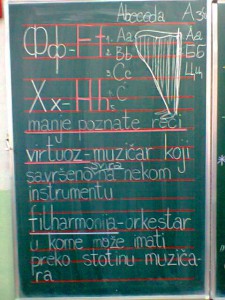 Abeceda Аз
Фф-Ff 1. Aa Аа
2. Bb Бб
3. Cc Цц
Хх-Hh 4. Č
manje poznate reči
virtuoz-muzičar koji
svira
savršeno na nekom
instrumentu
filharmonija-orkestar
u kome može imati
preko stotinu muziča-
ra